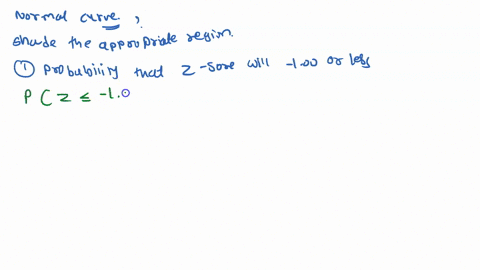 Normal curve,
shade the appropriate region.
① Probability that Z-sore will -1.00 or less
P ( Z ≤ -1.0